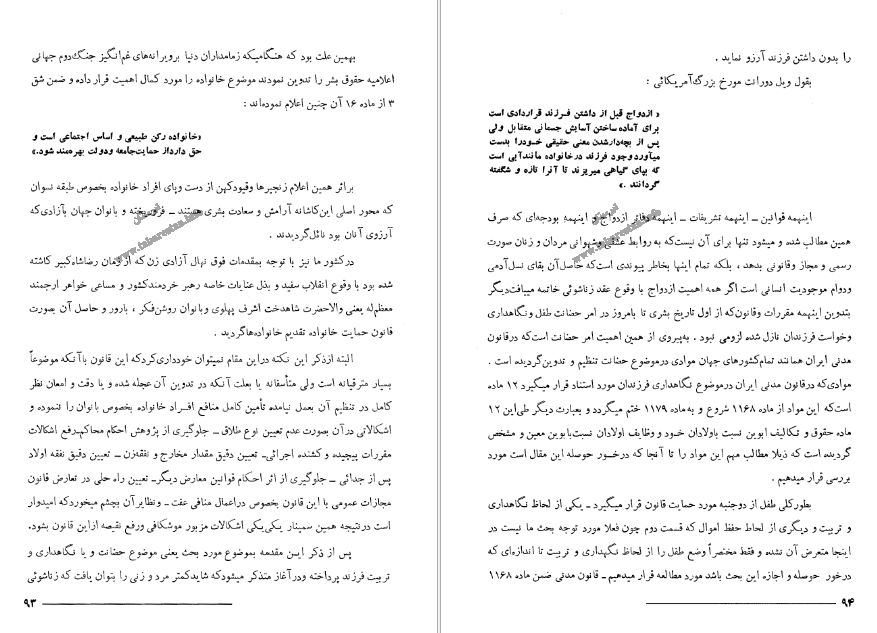 بهمین علت بود که هنگامیکه زمامداران دنیا برویرانه‌های غم‌انگیز جنگ‌دوم جهانی
اعلامیه حقوق بشر را تدوین نمودند موضوع خانواده را مورد کمال اهمیت قرار داده و ضمن شق
۳ از ماده ۱۶ آن چنین اعلام نموده‌اند :
«خانواده رکن طبیعی و اساس اجتماعی است و
حق دارد از حمایت‌جامعه ودولت بهره‌مند شود.»
براثر همین اعلام زنجیرها وقیودکهن از دست وپای افراد خانواده بخصوص طبقه نسوان
که محور اصلی این‌کاشانه آرامش و سعادت بشری هستند ـ فروریخته و بانوان جهان بآزادی‌که
آرزوی آنان بود نائل‌گردیدند .
درکشور ما نیز با توجه بمقدمات فوق نهال آزادی زن که از زمان رضاشاه‌کبیر کاشته
شده بود با وقوع انقلاب سفید و بذل عنایات خاصه رهبر خردمندکشور و مساعی خواهر ارجمند
معظم‌له یعنی والاحضرت شاهدخت اشرف پهلوی وبانوان روشن‌فکر ، بارور و حاصل آن بصورت
قانون حمایت خانواده تقدیم خانواده‌هاگردید .
البته ازذکر این نکته دراین مقام نمیتوان خودداری‌کردکه این قانون باآنکه موضوعاً
بسیار مترقیانه است ولی متأسفانه یا بعلت آنکه در تدوین آن عجله شده و یا دقت و امعان نظر
کامل در تنظیم آن بعمل نیامده تأمین کامل منافع افراد خانواده بخصوص بانوان را ننموده و
اشکالاتی درآن بصورت عدم تعیین نوع طلاق ـ جلوگیری از پژوهش احکام محاکم‌ـرفع اشکالات
مقررات پیچیده و کشنده اجرائی‌ـ تعیین دقیق مقدار مخارج و نفقه‌زن ـ تعیین دقیق نفقه اولاد
پس از جدائی ـ جلوگیری از اثر احکام قوانین معارض دیگرـ تعیین راه حلی در تعارض قانون
مجازات عمومی با این قانون بخصوص دراعمال منافی عفت ـ ونظایرآن بچشم میخوردکه امیدوار
است درنتیجه همین سمینار یکی‌یکی اشکالات مزبور موشکافی ورفع نقیصه ازاین قانون بشود.
پس از ذکر این مقدمه بموضوع مورد بحث یعنی موضوع حضانت و یا نگاهداری و
تربیت فرزند پرداخته ودرآغاز متذکر میشودکه شایدکمتر مرد و زنی را بتوان یافت که زناشوئی
۹۳
را بدون داشتن فرزند آرزو نماید .
بقول ویل دورانت مورخ بزرگ‌آمریکائی :
« ازدواج قبل از داشتن فرزند قراردادی است
برای آماده ساختن آسایش جسمانی متقابل ولی
پس از بچه‌دارشدن معنی حقیقی خودرا بدست
میآورد وجود فرزند درخانواده مانندآبی است
که بپای گیاهی میریزند تا آنرا تازه و شگفته
گردانند .»
اینهمه قوانین ـ اینهمه تشریفات ـ اینهمه دفاتر ازدواج و اینهمه بودجه‌ای که صرف
همین مطالب شده و میشود تنها برای آن نیست‌که به روابط عشقی وشهوانی مردان و زنان صورت
رسمی و مجاز وقانونی بدهد ، بلکه تمام اینها بخاطر پیوندی است‌که حاصل‌آن بقای نسل‌آدمی
ودوام موجودیت انسانی است اگر همه اهمیت ازدواج با وقوع عقد زناشوئی خاتمه مییافت‌دیگر
بتدوین اینهمه مقررات وقانون‌که از اول تاریخ بشری تا بامروز در امر حضانت طفل ونگاهداری
وخواست فرزندان نازل شده لزومی نبود . به‌پیروی از همین اهمیت امر حضانت است‌که درقانون
مدنی ایران همانند تمام‌کشورهای جهان موادی درموضوع حضانت تنظیم و تدوین‌گردیده است .
موادی‌که درقانون مدنی ایران درموضوع نگاهداری فرزندان مورد استناد قرار میگیرد ۱۲ ماده
است‌که این مواد از ماده ۱۱۶۸ شروع و به‌ماده ۱۱۷۹ ختم میگردد و بعبارت دیگر طی‌این ۱۲
ماده حقوق و تکالیف ابوین نسبت باولادان خود و وظایف اولادان نسبت‌بابوین معین و مشخص
گردیده است که ذیلا مطالب مهم این مواد را تا آنجا که درخور حوصله این مقال است مورد
بررسی قرار میدهیم .
بطورکلی طفل از دوجنبه مورد حمایت قانون قرار میگیرد ـ یکی از لحاظ نگاهداری
و تربیت و دیگری از لحاظ حفظ اموال که قسمت دوم چون فعلا مورد توجه بحث ما نیست در
اینجا متعرض آن نشده و فقط مختصراً وضع طفل را از لحاظ نگهداری و تربیت تا اندازه‌ای که
درخور حوصله و اجازه این بحث باشد مورد مطالعه قرار میدهیم ـ قانون مدنی ضمن ماده ۱۱۶۸
۹۴